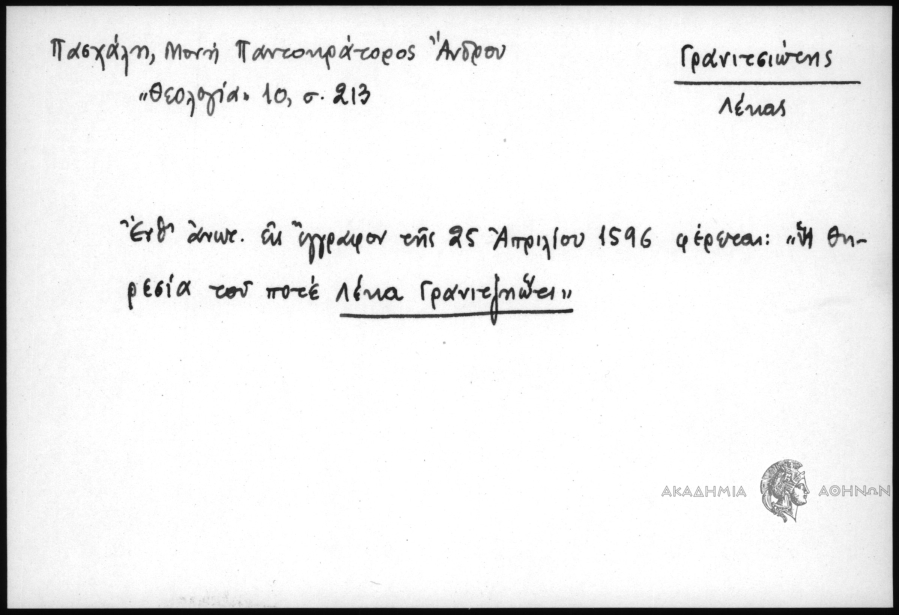 Πασχάλη, Μονή Παντοκράτορος Ἄνδρου
«Θεολογία» 10, σ. 213
Γρανιτσιώτης
Λέκας
Ἔνθ' ἀνωτ. εἰς ἔγγραφον τῆς 25 Ἀπριλίου 1596 φέρεται: «Ἡ θη-
ρεσία τοῦ ποτέ Λέκα Γρανιτζηώτι»
ΑΚΑΔΗΜΙΑ ΑΘΗΝΩΝ